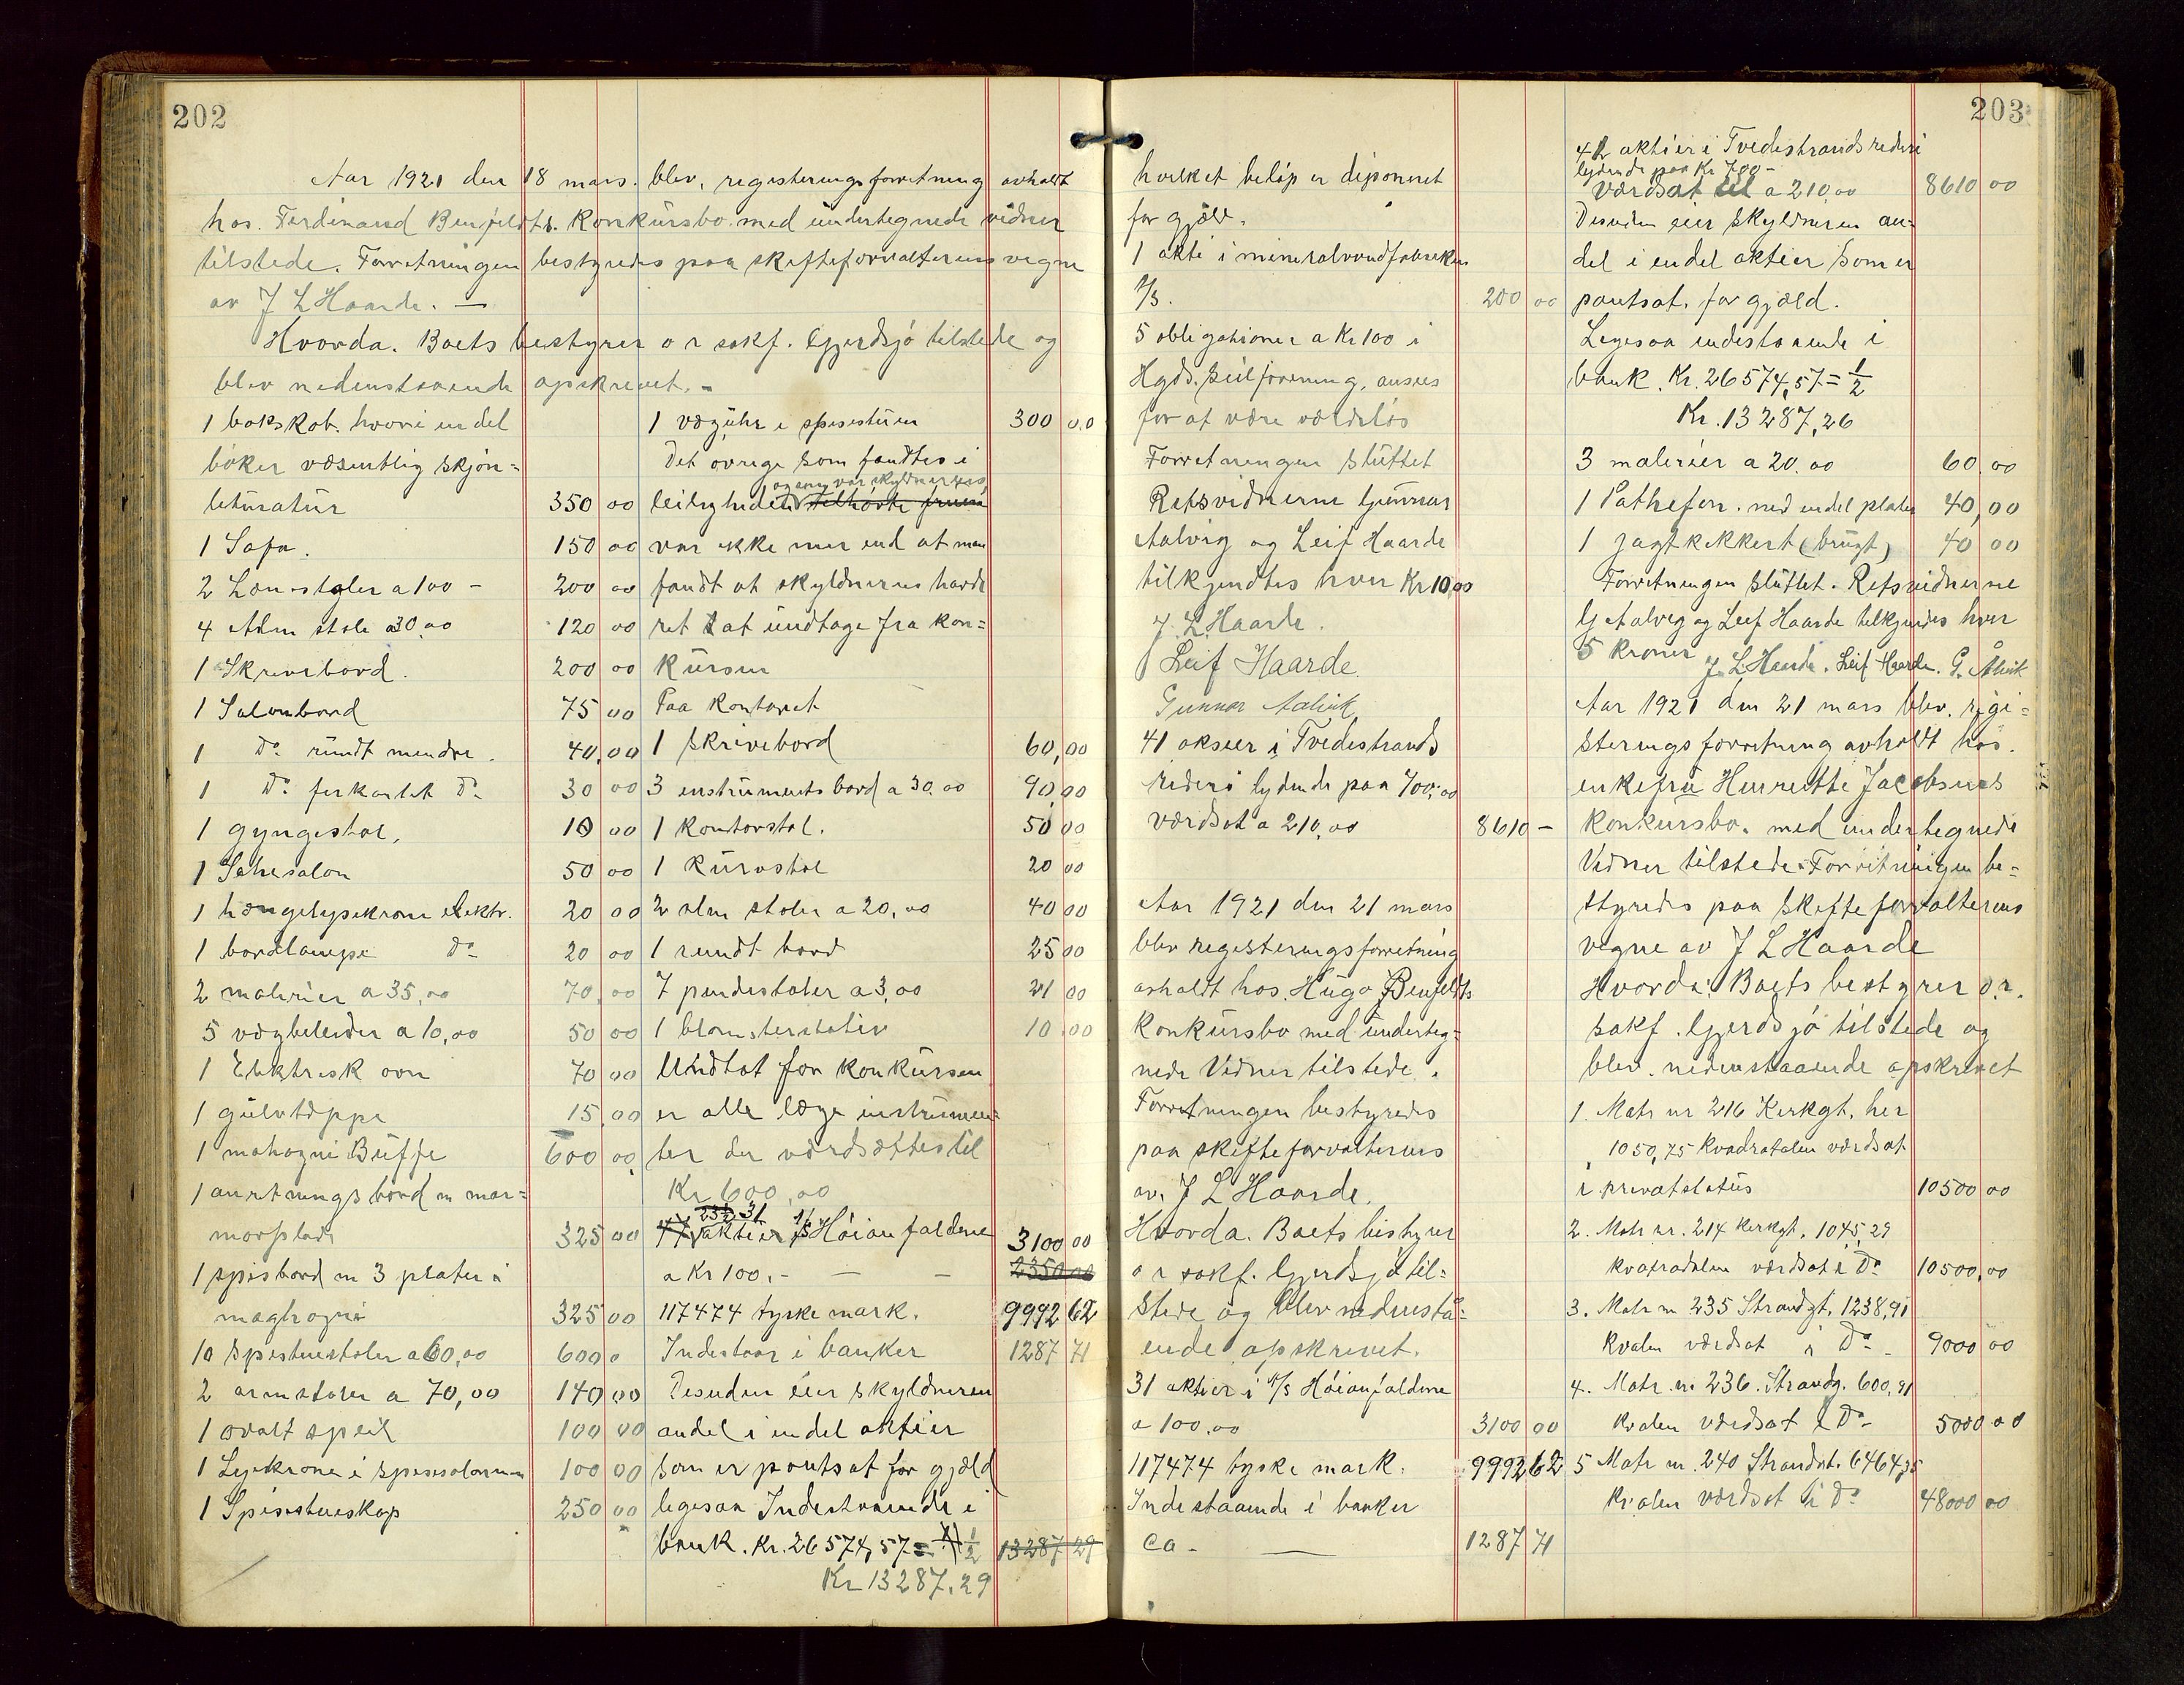 202
Aar 1921 den 18 mars. blev, registeringsforretning avholdt
hos. Ferdinand Benfeldts. Konkürsbo med ündertegnede vidner
tilstede. Forretningen bestyredes paa skifteforvalterens vegne
av J L Haarde. —
Hvorda. Boets bestyrer o r sakf. Gjerdsjö tilstede og
blev nedenstaaende opskrevet. -
1 bokskab. hvori en del
böker væsentlig skjön=
literatür 350 00
1 Sofa. 150 00
2 Lænestoler a 100 - 200 00
4 Alm stole a 30.00 120 00
1 Skrivebord. 200 00
1 Salonbord 75 00
1 Do ründt mindre. 40,00
1 Do firkantet Do 30 00
1 gyngestol, 10 00
1 Sehesalon 50 00
1 hængelysekrone elektr. 20 00
1 bordlampe Do 20 00
2 malerier a 35,00 70,00
5 vægbelleder a 10,00 50 00
1 Elektrisk ovn 70 00
1 gülvtæppe 15,00
1 mahogni Büffe 600 00
1 anretningsbord m mar=
morplade 325 00
1 spisbord m 3 plater i
maghogni 325 00
10 spistuestoler a 60,00 600 0
2 armstoler a 70,00 140,00
1 ovalt speil 100 00
1 Lysekrone i spisesalonen 100 00
1 Spisestueskap 250 00
1 vægühr i spisestüen 300 0.0
Det ovrige som fandtes i
og eny var skyldnerens,
leiligheden tilhörte fruen
var ikke mer end at man
fandt at skyldneren havde
ret at ündtage fra kon=
kürsen
Paa Kontoret
1 skrivebord 60,00
3 instrümentsbord a 30.00 90,00
1 Kontorstol. 50,00
1 Kürvstol 20 00
2 alm stoler a 20,00 40 00
1 rundt bord 25 00
7 pindestoler a 3,00 21 00
1 blomsterstativ 10.00
Undtat for konkürsen
er alle læge instrümen=
ter der værdsættes til
Kr 600,00
23½ 31
47 aktier A/S Höianfaldene 3100 00
a Kr 100. - — — 2350 00
117474 tyske mark. 9992 62
Indestaar i banker 1287 71
Desuden eier skyldneren
andel i endel aktier
som er pantsat for gjæld
legesaa Indestaaende i
bank. Kr. 26574,57 = ½ 13287 29
Kr 13287.29
hvilket belöp er diponeret
for gjæld.
1 aktie i mineralvandfabriken
A/S. 200 00
5 obligationer a Kr 100 i
Hgds. seilforening, ansees
for at være værdilös
Forretningen slüttet
Retsvidnerne Günnar
Aalvig og Leif Haarde
tilkjendtes hver Kr 10,00
J. L Haarde.
Leif Haarde
Gunnar Aalvik
41 aksier i Tvedestrands
rederi lydende paa 700,00
værdsat a 210,00 8610 -
Aar 1921 den 21 mars
blev registeringsforretning
avholdt hos. Hügo Benfeldts
Konkürsbo med ünderteg=
nede Vidner tilstede.
Forretningen bestyredes
paa skifteforvalterens
av. J L Haarde.
Hvorda. Boets bestyrer
o r sakf. Gjerdsjö til=
stede og blev nedenstå=
ende opskrevet.
31 aktier i A/S Höianfaldene
a 100.00 3100 00
117474 tyske mark. 9992 62
Indestaaende i banker
ca - — 1287 71
203
41 aktier i Tvedestrands rederi
lydende paa Kr 700 -
værdsat a 210,00 8610 00
Desuden eier skyldneren an=
del i endel aktier som er
pantsat. for gjæld.
Legesaa indestaaende i
bank. Kr. 26574,57 = ½
Kr. 13287,26
3 malerier a 20.00 60,00
1 Pathefon. med endel plater 40,00
1 jagtkikkert (brügt) 40 00
Forretningen slüttet. Retsvidnerne
G Aalvig og Leif Haarde tilkjendes hver
5 Kroner J. L Haarde. Leif Haarde. G. Ålvik
Aar 1921 den 21 mars blev. regi=
steringsforretning avholdt hos.
enkefrü Henriette Jacobsens
Konkursbo. med undertegnede
Vidner tilstede. Forretningen be=
styredes paa skifteforvalterens
vegne av J L Haarde
Hvorda. Boets bestyrer o.r.
sakf. Gjerdsjö tilstede og
blev. nedenstaaende opskrevet
1. Matr nr 216 Kirkgt. her
1050,75 Kvadratalen værdsat
i privatstatüs 10500 00
2. Matr nr. 214 Kirkgt. 1045,29
Kvatradalen værdsat i Do 10500,00
3. Matr nr 235 Strandgt. 1238,91
kvalen værdsat i Do - 9000 00
4. Matr. nr 236. Strandg. 600,91
kvalen værdsat i Do - 5000 00
5 Matr nr. 240 Strandgt. 6464,35
kvalen værdsat i Do 48000 00